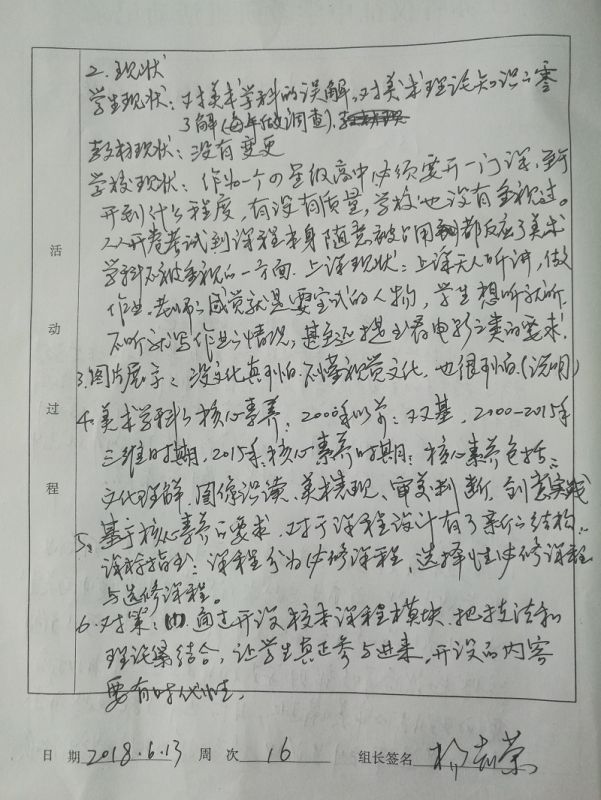 活动过程
2. 现状
学生现状：对美术学科的误解，对美术理论知识的零
了解（每年做调查）.
教材现状：没有变更
学校现状：作为一个四星级高中必须要开一门课，至于
开到什么程度，有没有质量，学校也没有重视过。
从开卷考试到课程本身随意被占用都反应了美术
学科不被重视的一方面. 上课现状：上课无人听讲，做
作业. 老师的感觉就是要宝式的人物，学生想听就听
不听就写作业的情况，甚至还提出看电影之类的要求.
3. 图片展示：没文化真可怕. 不懂视觉文化，也很可怕.（说明）
4. 美术学科的核心素养：2000年以前：双基，2000-2015年
三维时期，2015年：核心素养时期：核心素养包括：
文化理解、图像识读、美术表现、审美判断，创意实践
5. 基于核心素养的要求，对于课程设计有了新的结构.
课标指出：课程分为必修课程，选择性必修课程
与选修课程。
6. 对策：(1) 通过开设校本课程模块. 把技法和
理论紧结合，让学生真正参与进来，开设的内容
要有时代性，
日 期 2018.6.13 周 次 16 组长签名